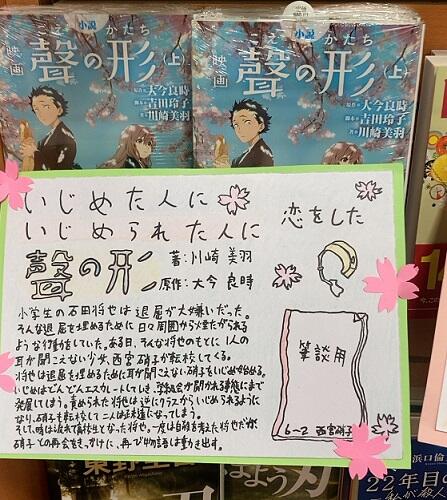 小説
こえ かたち
映画 聲の形 (上)
原作 大今良時
脚本 吉田玲子
著 川崎美羽
小説
こえ かたち
映画 聲の形 (上)
原作 大今良時
脚本 吉田玲子
著 川崎美羽
いじめた人に
いじめられた人に
恋をした
聲の形
著:川崎 美羽
原作:大今 良時
小学生の石田将也は退屈が大嫌いだった。
そんな退屈を埋めるために日々周囲から煙たがられる
ような行動をしていた。ある日、そんな将也のもとに1人の
耳が聞こえない少女、西宮硝子が転校してくる。
将也は退屈を埋めるために耳が聞こえない硝子をいじめ始める。
いじめはどんどんエスカレートしてしまい、学級会が開かれる事態にまで
発展してしまう。責められた将也は逆にクラスからいじめられるように
なり、硝子も転校して二人は疎遠になってしまう。
そして、時は流れて高校生となった将也。一度は自殺を考えた将也だが
硝子との再会をきっかけに、再び物語は動き出す。
筆談用
6-2 西宮硝子
東野圭
はよう
刃
浜口倫
22年目の
私が殺人